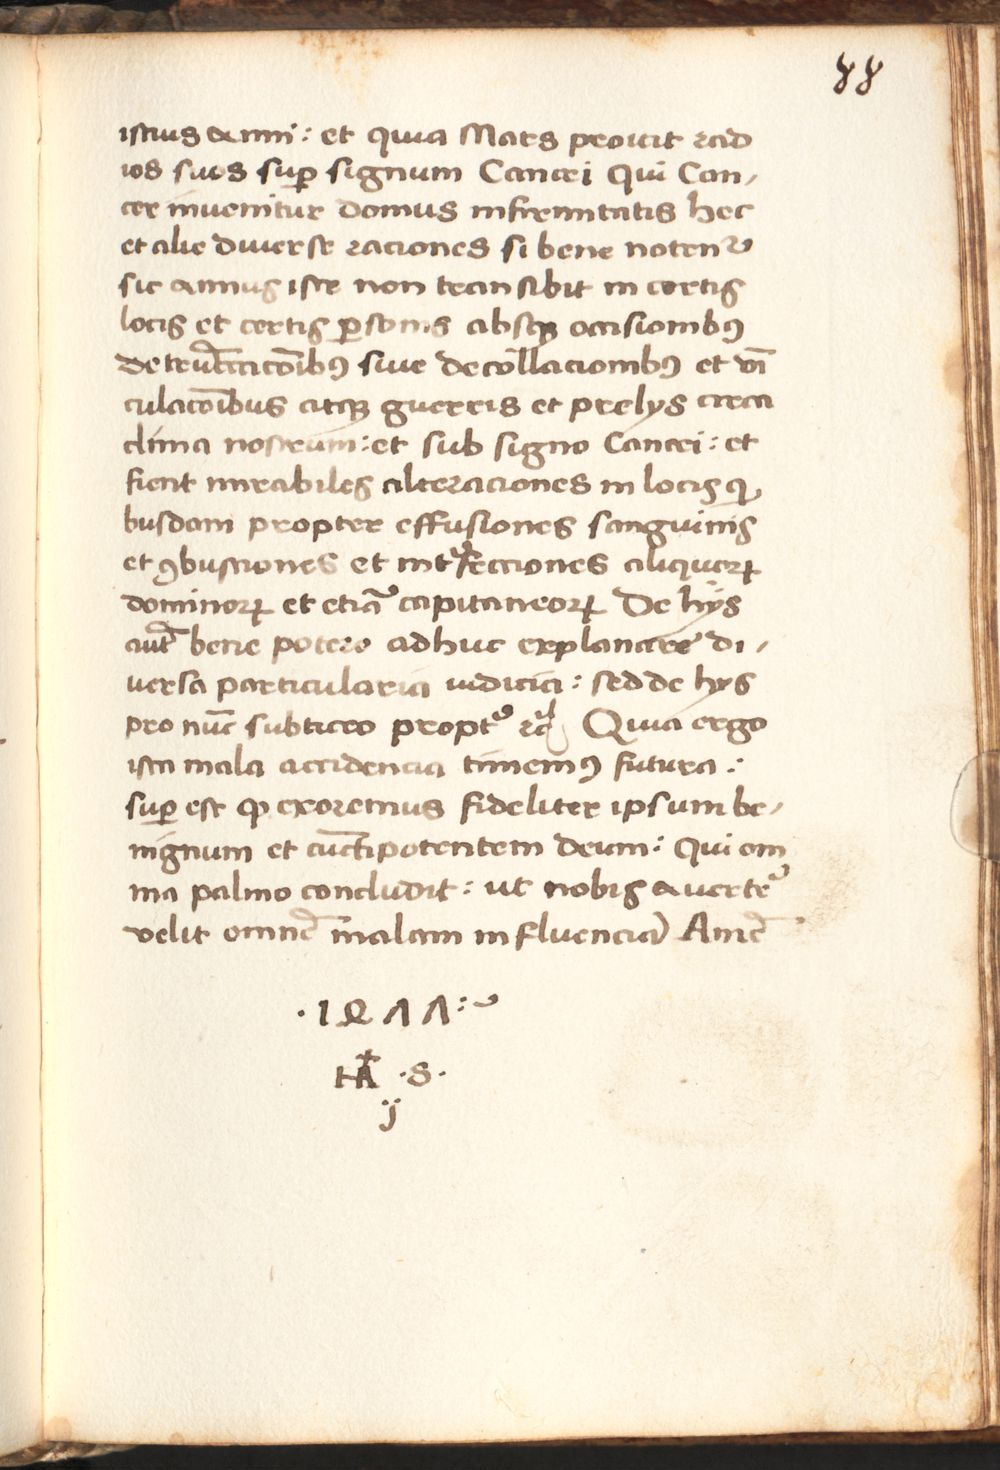 88
istius anni : et quia Mars proicit rad
ios suos sup̲ signum Cancri Qui Can⸗
cer invenitur domus infirmitatis hec
et alie diverse raciones si bene notenᷣ
sic annus iste non transibit in certis
locis et certis ꝑsonis absqꝫ occisionibꝰ
detru̅cac̅oibꝰ sive decollacionibꝰ et vi̅
culac̅oibus atqꝫ guerris et prelijs circa
clima nostrum : et sub signo Cancri : et
fient mirabiles alteraciones in locis qi⸗
busdam propter effusiones sanguinis
et ꝯbustiones et intᷣfecciones aliquorꝝ
dominorꝝ et etia̅ capitaneorꝝ De hijs
aut̅ bene potero adhuc explanare di⸗
versa particularia iudicia : sed de hijs
pro nu̅c subticeo propt᷒ ⁊c̅ Quia ergo
ista mala accidencia timemꝰ futura :
suꝑ est ꝙ exoremus fideliter ipsum be⸗
nignum et cu̅ctipotentem deum : Qui om
nia palmo concludit : ut nobis avertᷣe
velit omne̅ malam influencia̅ Ame̅
· 1 8 ʌ ʌ :~
HA · S ·
ij